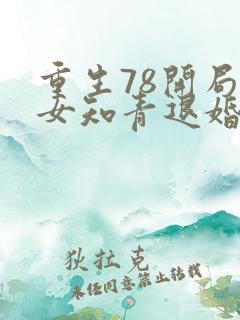 重生78開局
女知青退婚
狄拉克
未经同意禁止转载